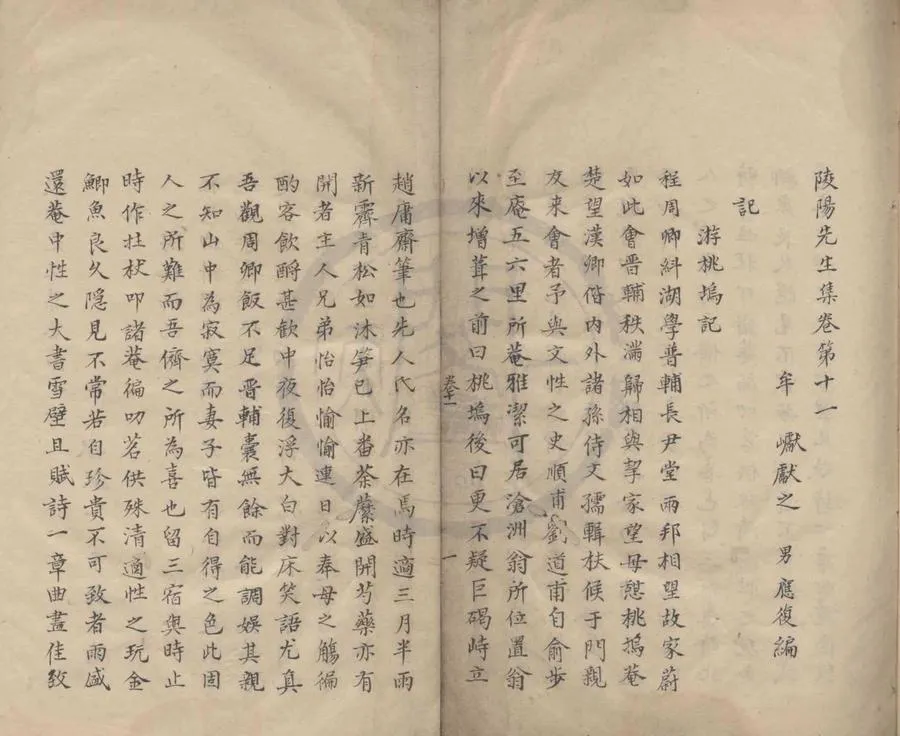 陵陽先生集卷第十一
牟 巘獻之 男應復編
記
游桃塢記
程周卿糾湖學普輔長尹堂兩邦相望故家蔚
如此會晋輔秩滿歸相與挈家望母慰桃塢菴
楚望漢卿偕内外諸孫侍文孺輯扶候于門親
友來會者予與文性之史順甫劉道甫自俞步
至庵五六里所菴雅潔可居滄洲翁所位置翁
以來增葺之前曰桃塢後曰更不疑巨碣峙立
卷十一
一
趙庸齋筆也先人氏名亦在焉時適三月半雨
新霽青松如沐笋已上番荼蘼盛開芍藥亦有
開者主人兄弟怡怡愉愉連日以奉母之觴徧
酌客飲酹甚歡中夜復浮大白對床笑語尤真
吾觀周卿飯不足晋輔囊無餘而能調娛其親
不知山中為寂寞而妻子皆有自得之色此固
人之所難而吾儕之所為喜也留三宿與時止
時作拄杖叩諸菴徧叨茗供殊清適性之玩金
鯽魚良久隱見不常若自珍貴不可致者雨盛
還菴中性之大書雪壁且賦詩一章曲盡佳致